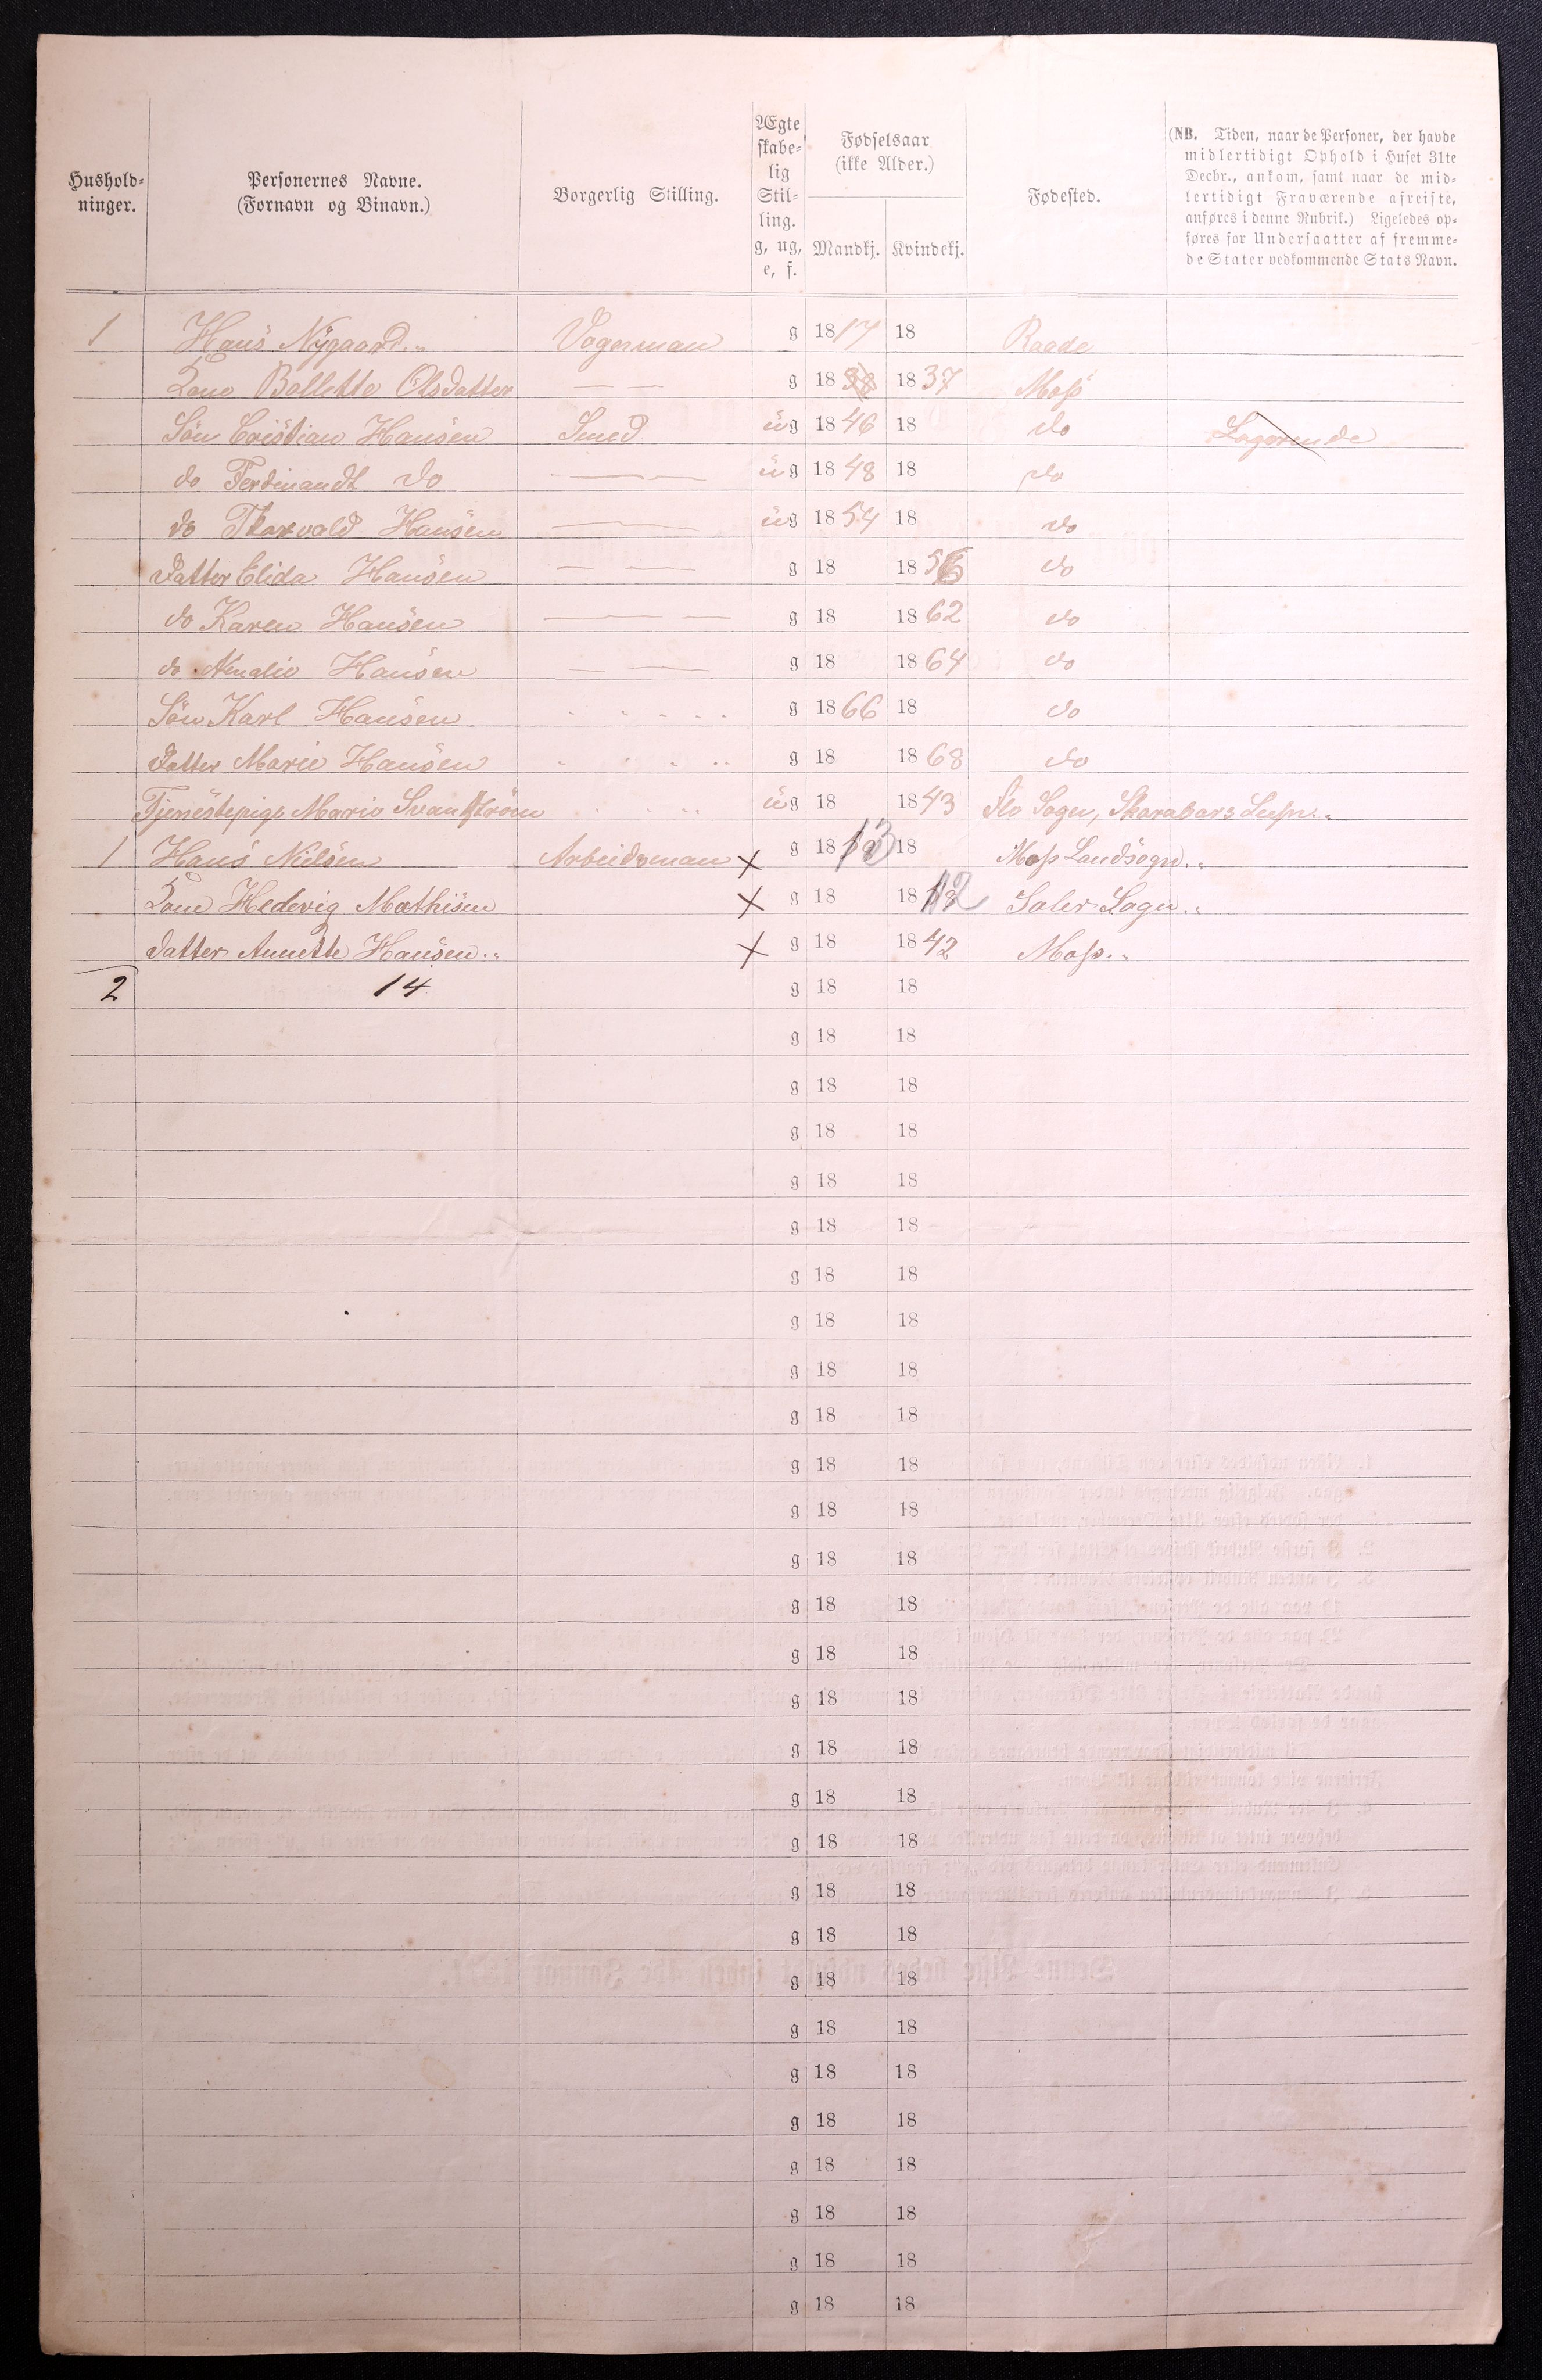 Hushold-
ninger.
Personernes Navne.
(Fornavn og Binavn.)
Borgerlig Stilling.
Ægte
skabe-
lig
Stil-
ling.
g, ug,
e, f.
Fødselsaar
(ikke Alder.)
Mandkj. Kvindekj.
Fødested.
(NB. Tiden, naar de Personer, der havde
midlertidigt Ophold i Huset 31te
Decbr., ankom, samt naar de mid-
lertidigt Fraværende afreiste,
anføres i denne Rubrik.) Ligeledes op-
føres for Undersaatter af fremme-
de Stater vedkommende Stats Navn.
1 Hans Nygaard Vognman g 1817 18 Raade
Kone Bollette Olsdatter — — g 18 1837 Moss
Søn Cristian Hansen Smed ug 1846 18 do
do Ferdinandt do — — ug 1848 18 do
do Thorvald Hansen — — ug 1854 18 do
Datter Elida Hansen — — g 18 1856 do
do Karen Hansen — — g 18 1862 do
do Amalie Hansen — — g 18 1864 do
Søn Karl Hansen g 1866 18 do
Datter Marie Hansen g 18 1868 do
Tjenestepige Marie Svanström ug 18 1843 Flo Sogn, Skarabars
1 Hans Nielsen Arbeidsman × g 1813 18 Moss Landsogn
Kone Hedevig Mathisen × g 18 1812 Saler Sogn
Datter Annette Hansen × g 18 1842 Moss
2 14 g 18 18
g 18 18
g 18 18
g 18 18
g 18 18
g 18 18
g 18 18
g 18 18
g 18 18
g 18 18
g 18 18
g 18 18
g 18 18
g 18 18
g 18 18
g 18 18
g 18 18
g 18 18
g 18 18
g 18 18
g 18 18
g 18 18
g 18 18
g 18 18
g 18 18
g 18 18
g 18 18
g 18 18
g 18 18